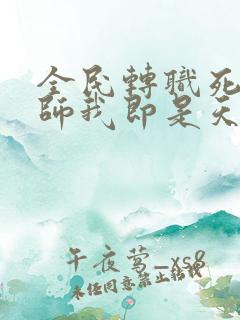 全民轉職死
師我即是天
午夜莺_xs8
未任同意禁止转载